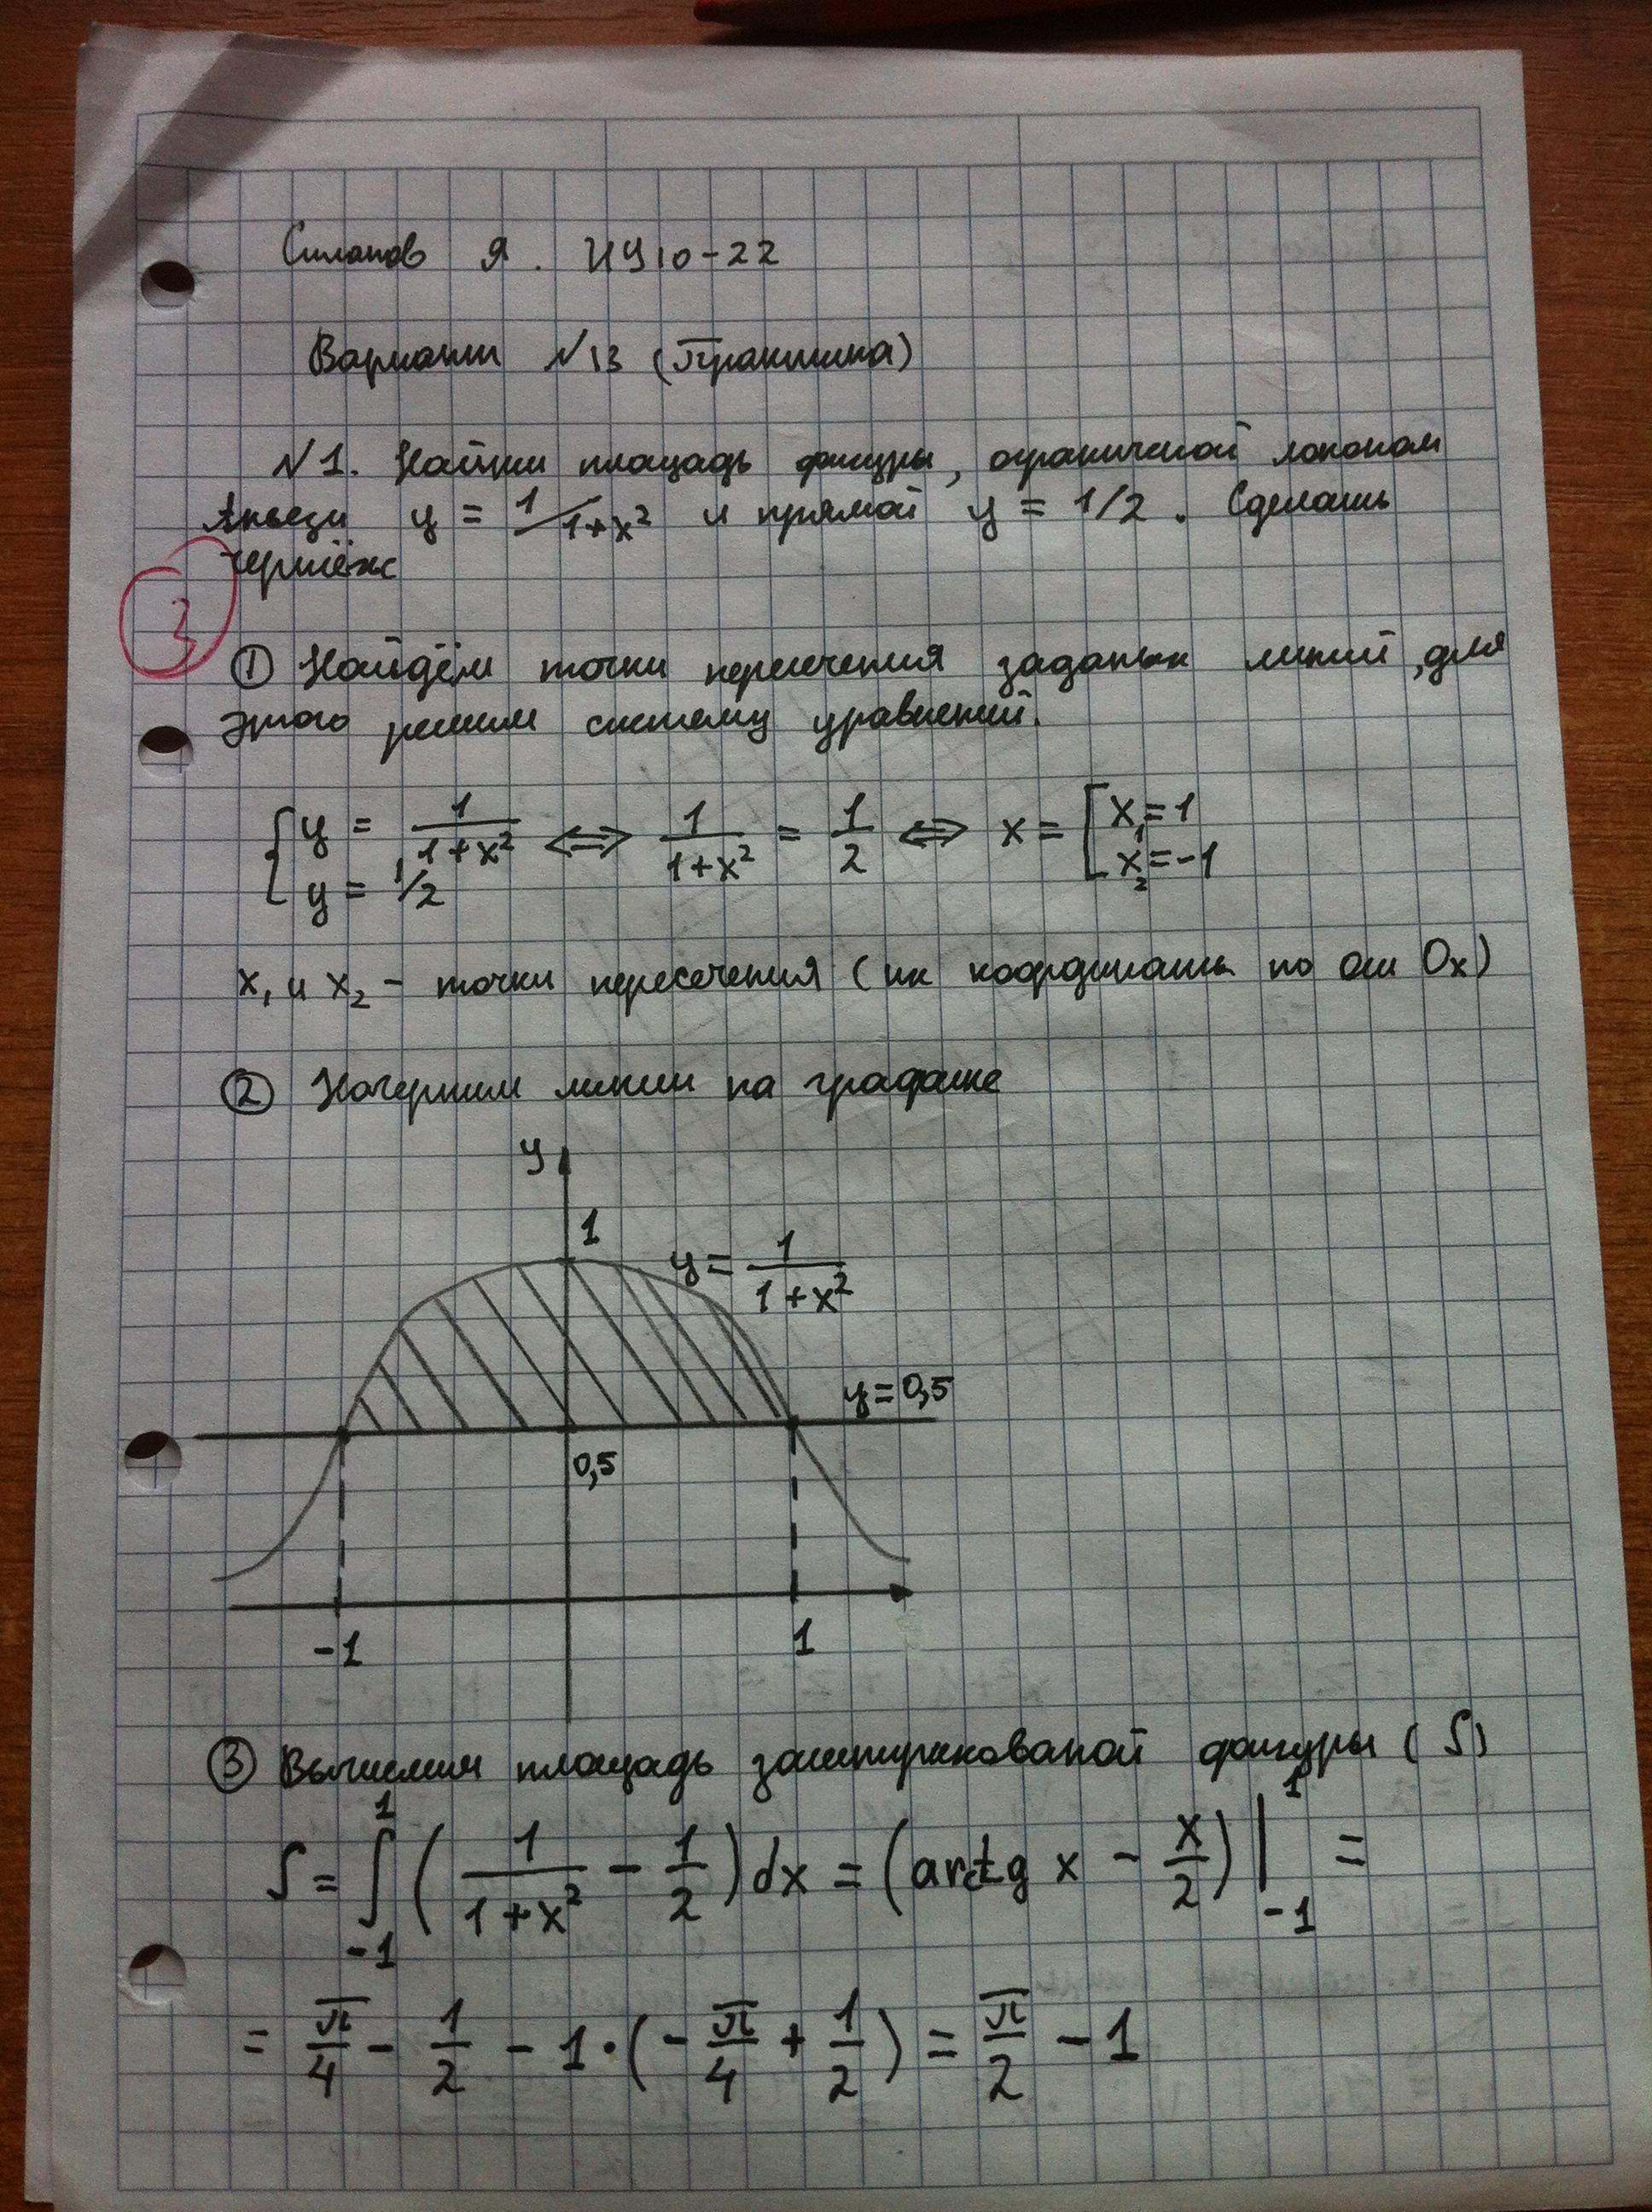 Силанов Я. ИУ10-22
Вариант №13 (Практика)
№1. Найти площадь фигуры, ограниченой локоном
Аньези y = 1/1+x² и прямой y = 1/2. Сделать
чертёж
3
① Найдём точки пересечения заданых линий, для
этого решим систему уравнений.
{ y = 1/(1+x²) ⟺ 1/(1+x²) = 1/2 ⟺ x = [ x₁=1
y = 1/2 x₂=-1
x₁ и x₂ - точки пересечения (их координаты по оси Ox)
② Начертим линии на графике
y
1
y = 1/(1+x²)
y=0,5
0,5
-1 1
③ Вычислим площадь заштрихованой фигуры (S)
S = ∫₋₁¹ (1/(1+x²) - 1/2)dx = (arctg x - x/2)|₋₁¹ =
= π/4 - 1/2 - 1·(-π/4 + 1/2) = π/2 - 1